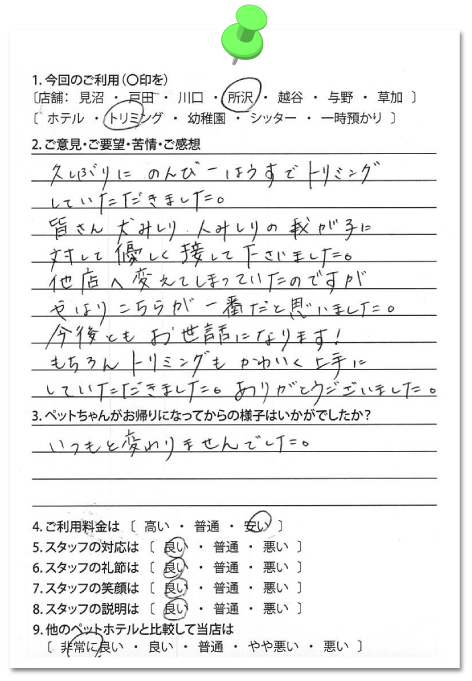 1. 今回のご利用(〇印を)
〔店舗: 見沼 ・ 戸田 ・ 川口 ・ 所沢 ・ 越谷 ・ 与野 ・ 草加 〕
〔 ホテル ・ トリミング ・ 幼稚園 ・ シッター ・ 一時預かり 〕
2. ご意見・ご要望・苦情・ご感想
久しぶりに のんびーはうすでトリミング
していただきました。
皆さん 犬みしり、人みしりの我が子に
対して優しく接して下さいました。
他店へ変えてしまっていたのですが
やはりこちらが一番だと思いました。
今後とも お世話になります!
もちろん トリミングも かわいく上手に
していただきました。ありがとうございました。
3. ペットちゃんがお帰りになってからの様子はいかがでしたか?
いつもと変わりませんでした。
4. ご利用料金は 〔 高い ・ 普通 ・ 安い 〕
5. スタッフの対応は 〔 良い ・ 普通 ・ 悪い 〕
6. スタッフの礼節は 〔 良い ・ 普通 ・ 悪い 〕
7. スタッフの笑顔は 〔 良い ・ 普通 ・ 悪い 〕
8. スタッフの説明は 〔 良い ・ 普通 ・ 悪い 〕
9. 他のペットホテルと比較して当店は
〔 非常に良い ・ 良い ・ 普通 ・ やや悪い ・ 悪い 〕